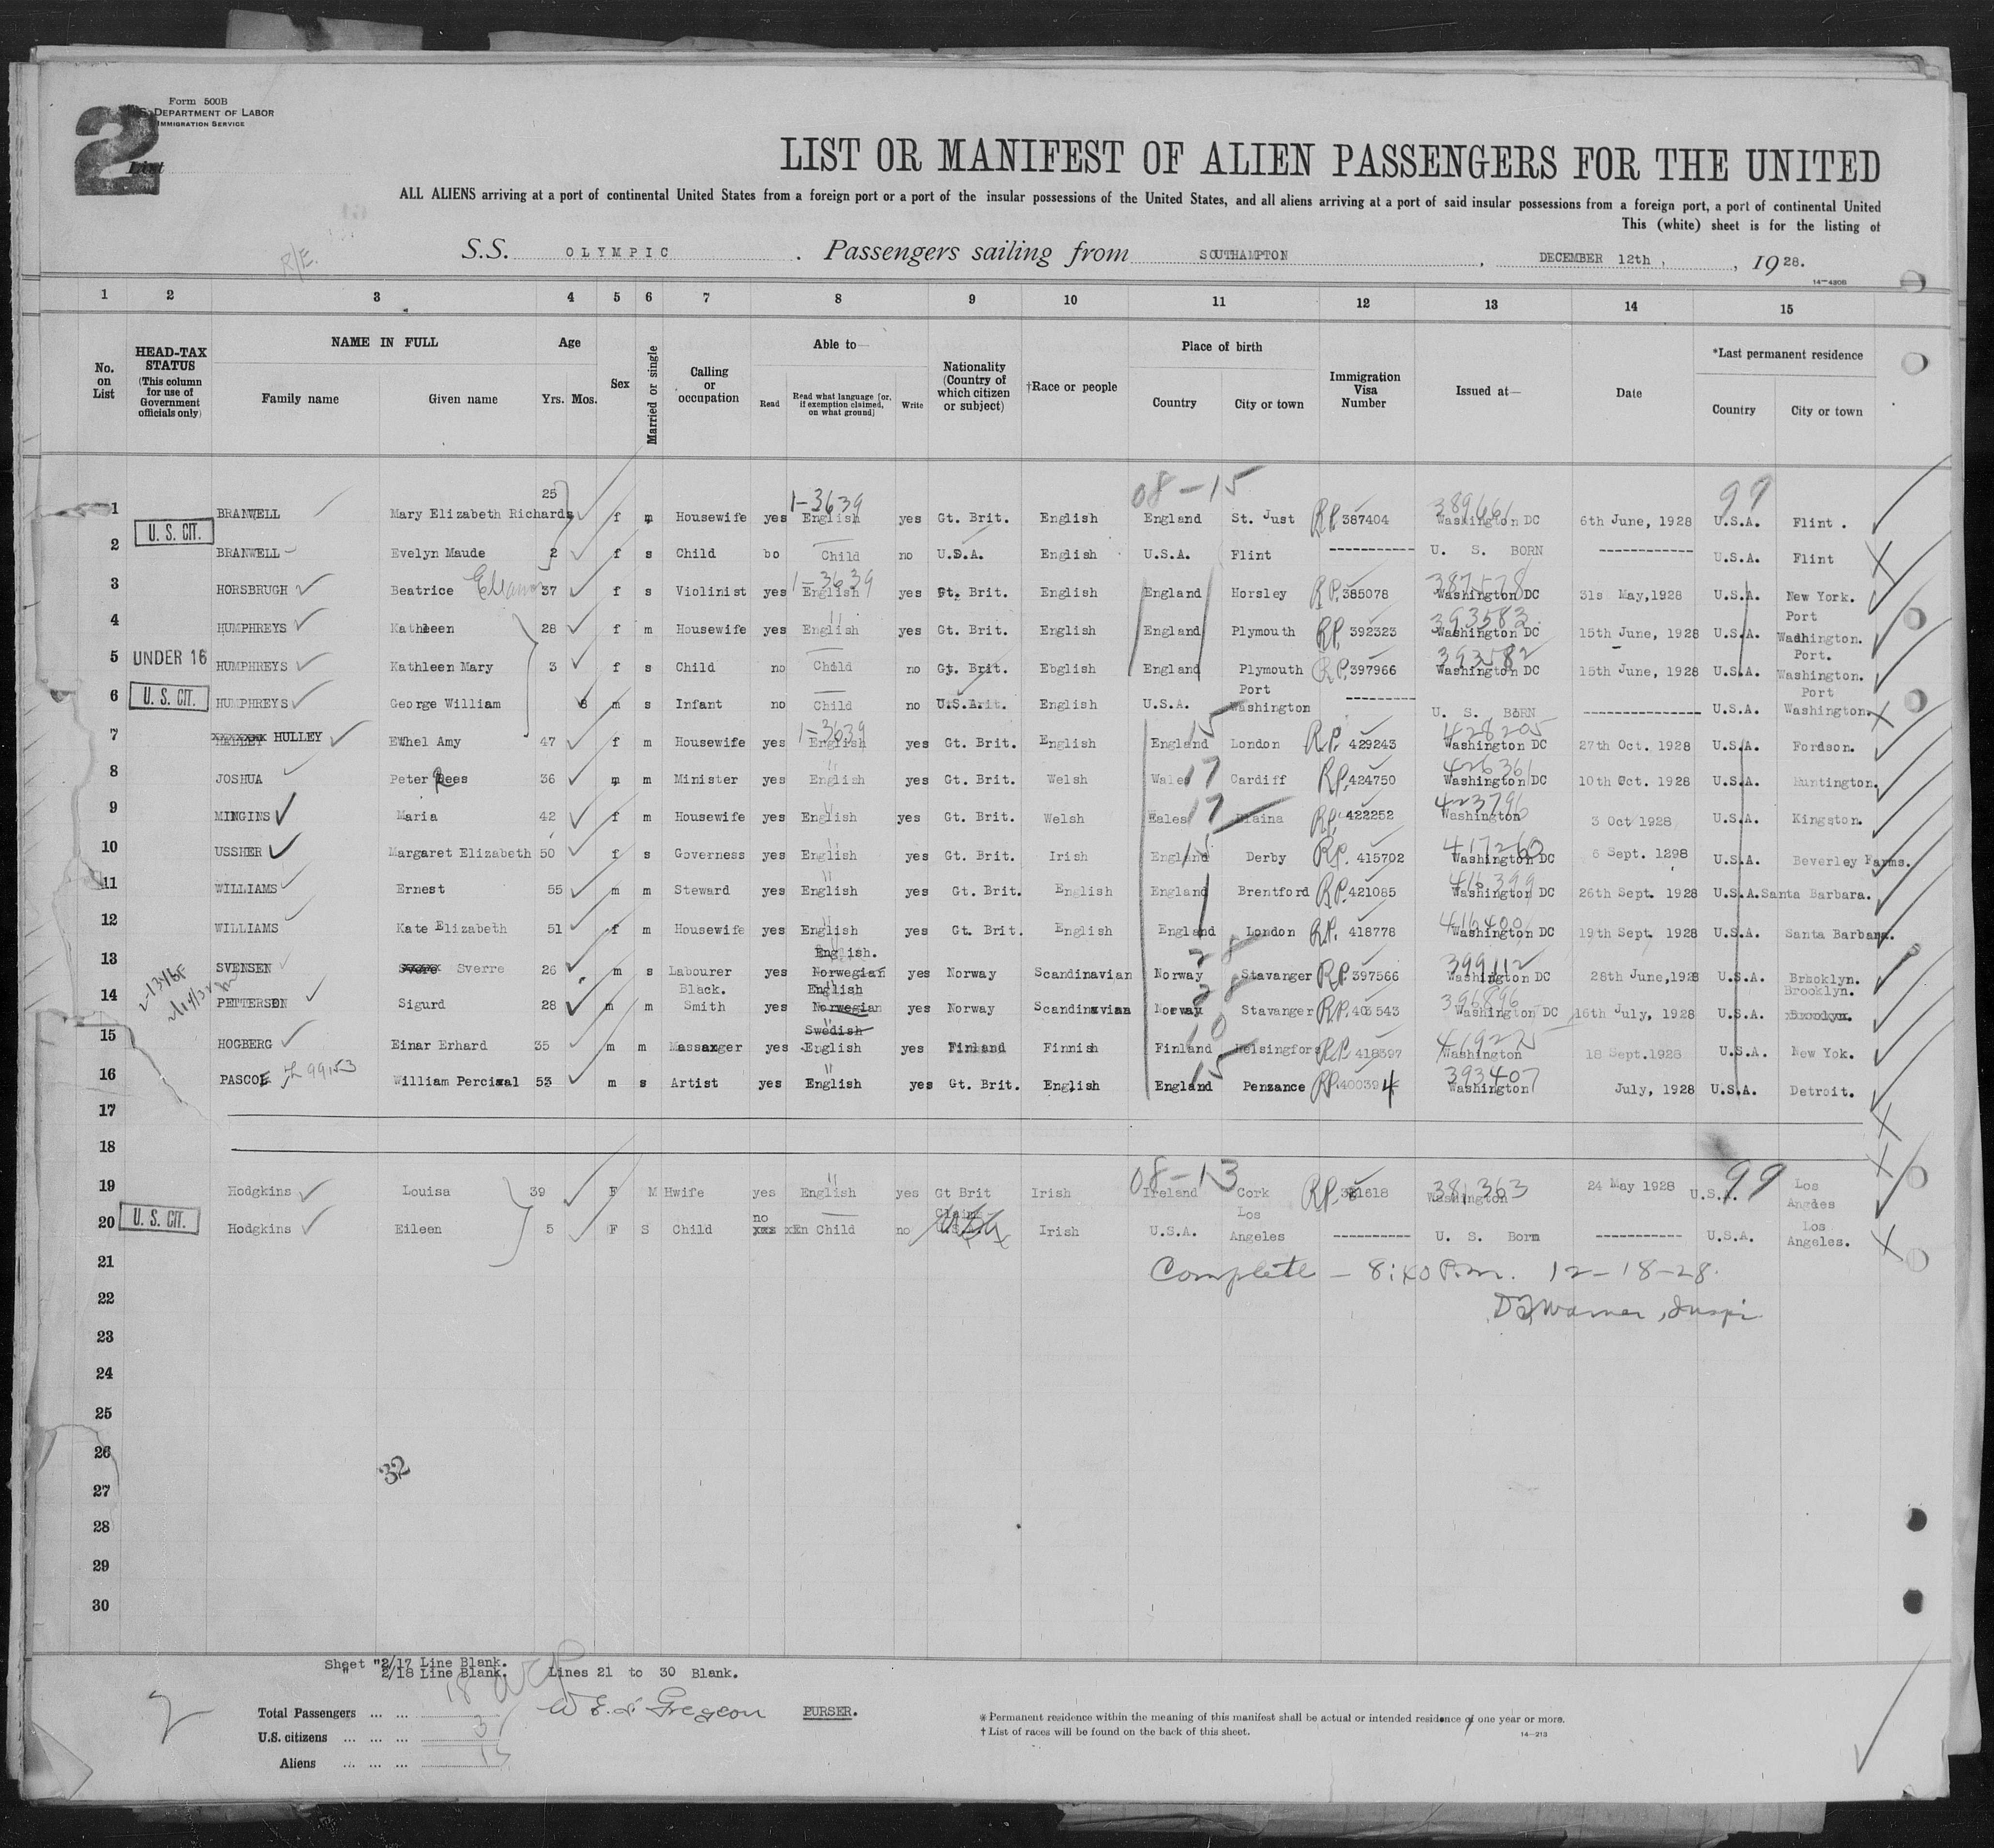 Form 500B
U.S. DEPARTMENT OF LABOR
IMMIGRATION SERVICE
2
List
LIST OR MANIFEST OF ALIEN PASSENGERS FOR THE UNITED
ALL ALIENS arriving at a port of continental United States from a foreign port or a port of the insular possessions of the United States, and all aliens arriving at a port of said insular possessions from a foreign port, a port of continental United
This (white) sheet is for the listing of
R/E.
S.S. OLYMPIC . Passengers sailing from SOUTHAMPTON , DECEMBER 12th , , 1928.
14—4306
1 2 3 4 5 6 7 8 9 10 11 12 13 14 15
No. on List HEAD-TAX STATUS (This column for use of Government officials only) NAME IN FULL Family name Given name Age Yrs. Mos. Sex Married or single Calling or occupation Able to— Read Read what language [or, if exemption claimed, on what ground] Write Nationality (Country of which citizen or subject) †Race or people Place of birth Country City or town Immigration Visa Number Issued at— Date *Last permanent residence Country City or town
1-3639 08-15 389661 99
1 BRANWELL Mary Elizabeth Richards 25 f m Housewife yes English yes Gt. Brit. English England St. Just RP. 387404 Washington DC 6th June, 1928 U.S.A. Flint .
U. S. CIT.
2 BRANWELL Evelyn Maude 2 f s Child bo Child no U.S.A. English U.S.A. Flint ----------- U. S. BORN ------------ U.S.A. Flint
1-3639 387578
3 HORSBRUGH Beatrice 37 f s Violinist yes English yes Gt. Brit. English England Horsley RP. 385078 Washington DC 31s May,1928 U.S.A. New York.
393583
4 HUMPHREYS Kathleen 28 f m Housewife yes English yes Gt. Brit. English England Plymouth RP. 392323 Washington DC 15th June, 1928 U.S.A. Port Wadhington.
393582
5 UNDER 16 HUMPHREYS Kathleen Mary 3 f s Child no Child no Gt. Brit. Ebglish England Plymouth RP. 397966 Washington DC 15th June, 1928 U.S.A. Port. Washington.
6 U. S. CIT. HUMPHREYS George William 8 m s Infant no Child no U.S.A. English U.S.A. Port Washington --------- U. S. BORN --------------- U.S.A. Port Washington.
1-3639 15 428205
7 HULLEY Ethel Amy 47 f m Housewife yes English yes Gt. Brit. English England London RP. 429243 Washington DC 27th Oct. 1928 U.S.A. Fordson.
426361
8 JOSHUA Peter Rees 36 m m Minister yes English yes Gt. Brit. Welsh Wales 17 Cardiff RP. 424750 Washington DC 10th Oct. 1928 U.S.A. Huntington.
423796
9 MINGINS Maria 42 f m Housewife yes English yes Gt. Brit. Welsh Eales 17 Blaina RP. 422252 Washington 3 Oct 1928 U.S.A. Kingston.
417263
10 USSHER Margaret Elizabeth 50 f s Governess yes English yes Gt. Brit. Irish England Derby RP. 415702 Washington DC 6 Sept. 1298 U.S.A. Beverley Farms.
416399
11 WILLIAMS Ernest 55 m m Steward yes English yes Gt. Brit. English England Brentford RP. 421085 Washington DC 26th Sept. 1928 U.S.A. Santa Barbara.
416400
12 WILLIAMS Kate Elizabeth 51 f m Housewife yes English yes Gt. Brit. English England London RP. 418778 Washington DC 19th Sept. 1928 U.S.A. Santa Barbara.
28 399112
13 SVENSEN Sverre 26 m s Labourer yes English. Norwegian yes Norway Scandinavian Norway Stavanger RP. 397566 Washington DC 28th June,1928 U.S.A. Brooklyn.
28 396896
14 PETTERSEN Sigurd 28 m m Black. Smith yes English Norwegian yes Norway Scandinavian Norway Stavanger RP. 403543 Washington DC 16th July, 1928 U.S.A. Brooklyn.
10
15 HOGBERG Einar Erhard 35 m m Massager yes Swedish English yes Finland Finnish Finland Helsingfors RP. 418397 Washington 18 Sept.1928 U.S.A. New Yok.
15 393407
16 PASCOE 99153 William Percival 53 m s Artist yes English yes Gt. Brit. English England Penzance RP. 400394 Washington July, 1928 U.S.A. Detroit.
17
18
08-13 381363 99
19 Hodgkins Louisa 39 F M Hwife yes English yes Gt Brit Irish Ireland Cork RP. 381618 Washington 24 May 1928 U.S.A. Los Angdes
20 U. S. CIT. Hodgkins Eileen 5 F S Child no xxx xEn Child no Irish U.S.A. Los Angeles ---------- U. S. Born ----------- U.S.A. Los Angeles.
21 Complete - 8:40 P.m. 12-18-28.
22 Warner, Inspr
23
24
25
26
32
27
28
29
30
Sheet "2/17 Line Blank.
" 2/18 Line Blank. Lines 21 to 30 Blank.
2
Total Passengers ... ... 18 PURSER.
U.S. citizens ... ... ... 3
Aliens ... ... ... 15
* Permanent residence within the meaning of this manifest shall be actual or intended residence of one year or more.
† List of races will be found on the back of this sheet.
14—213